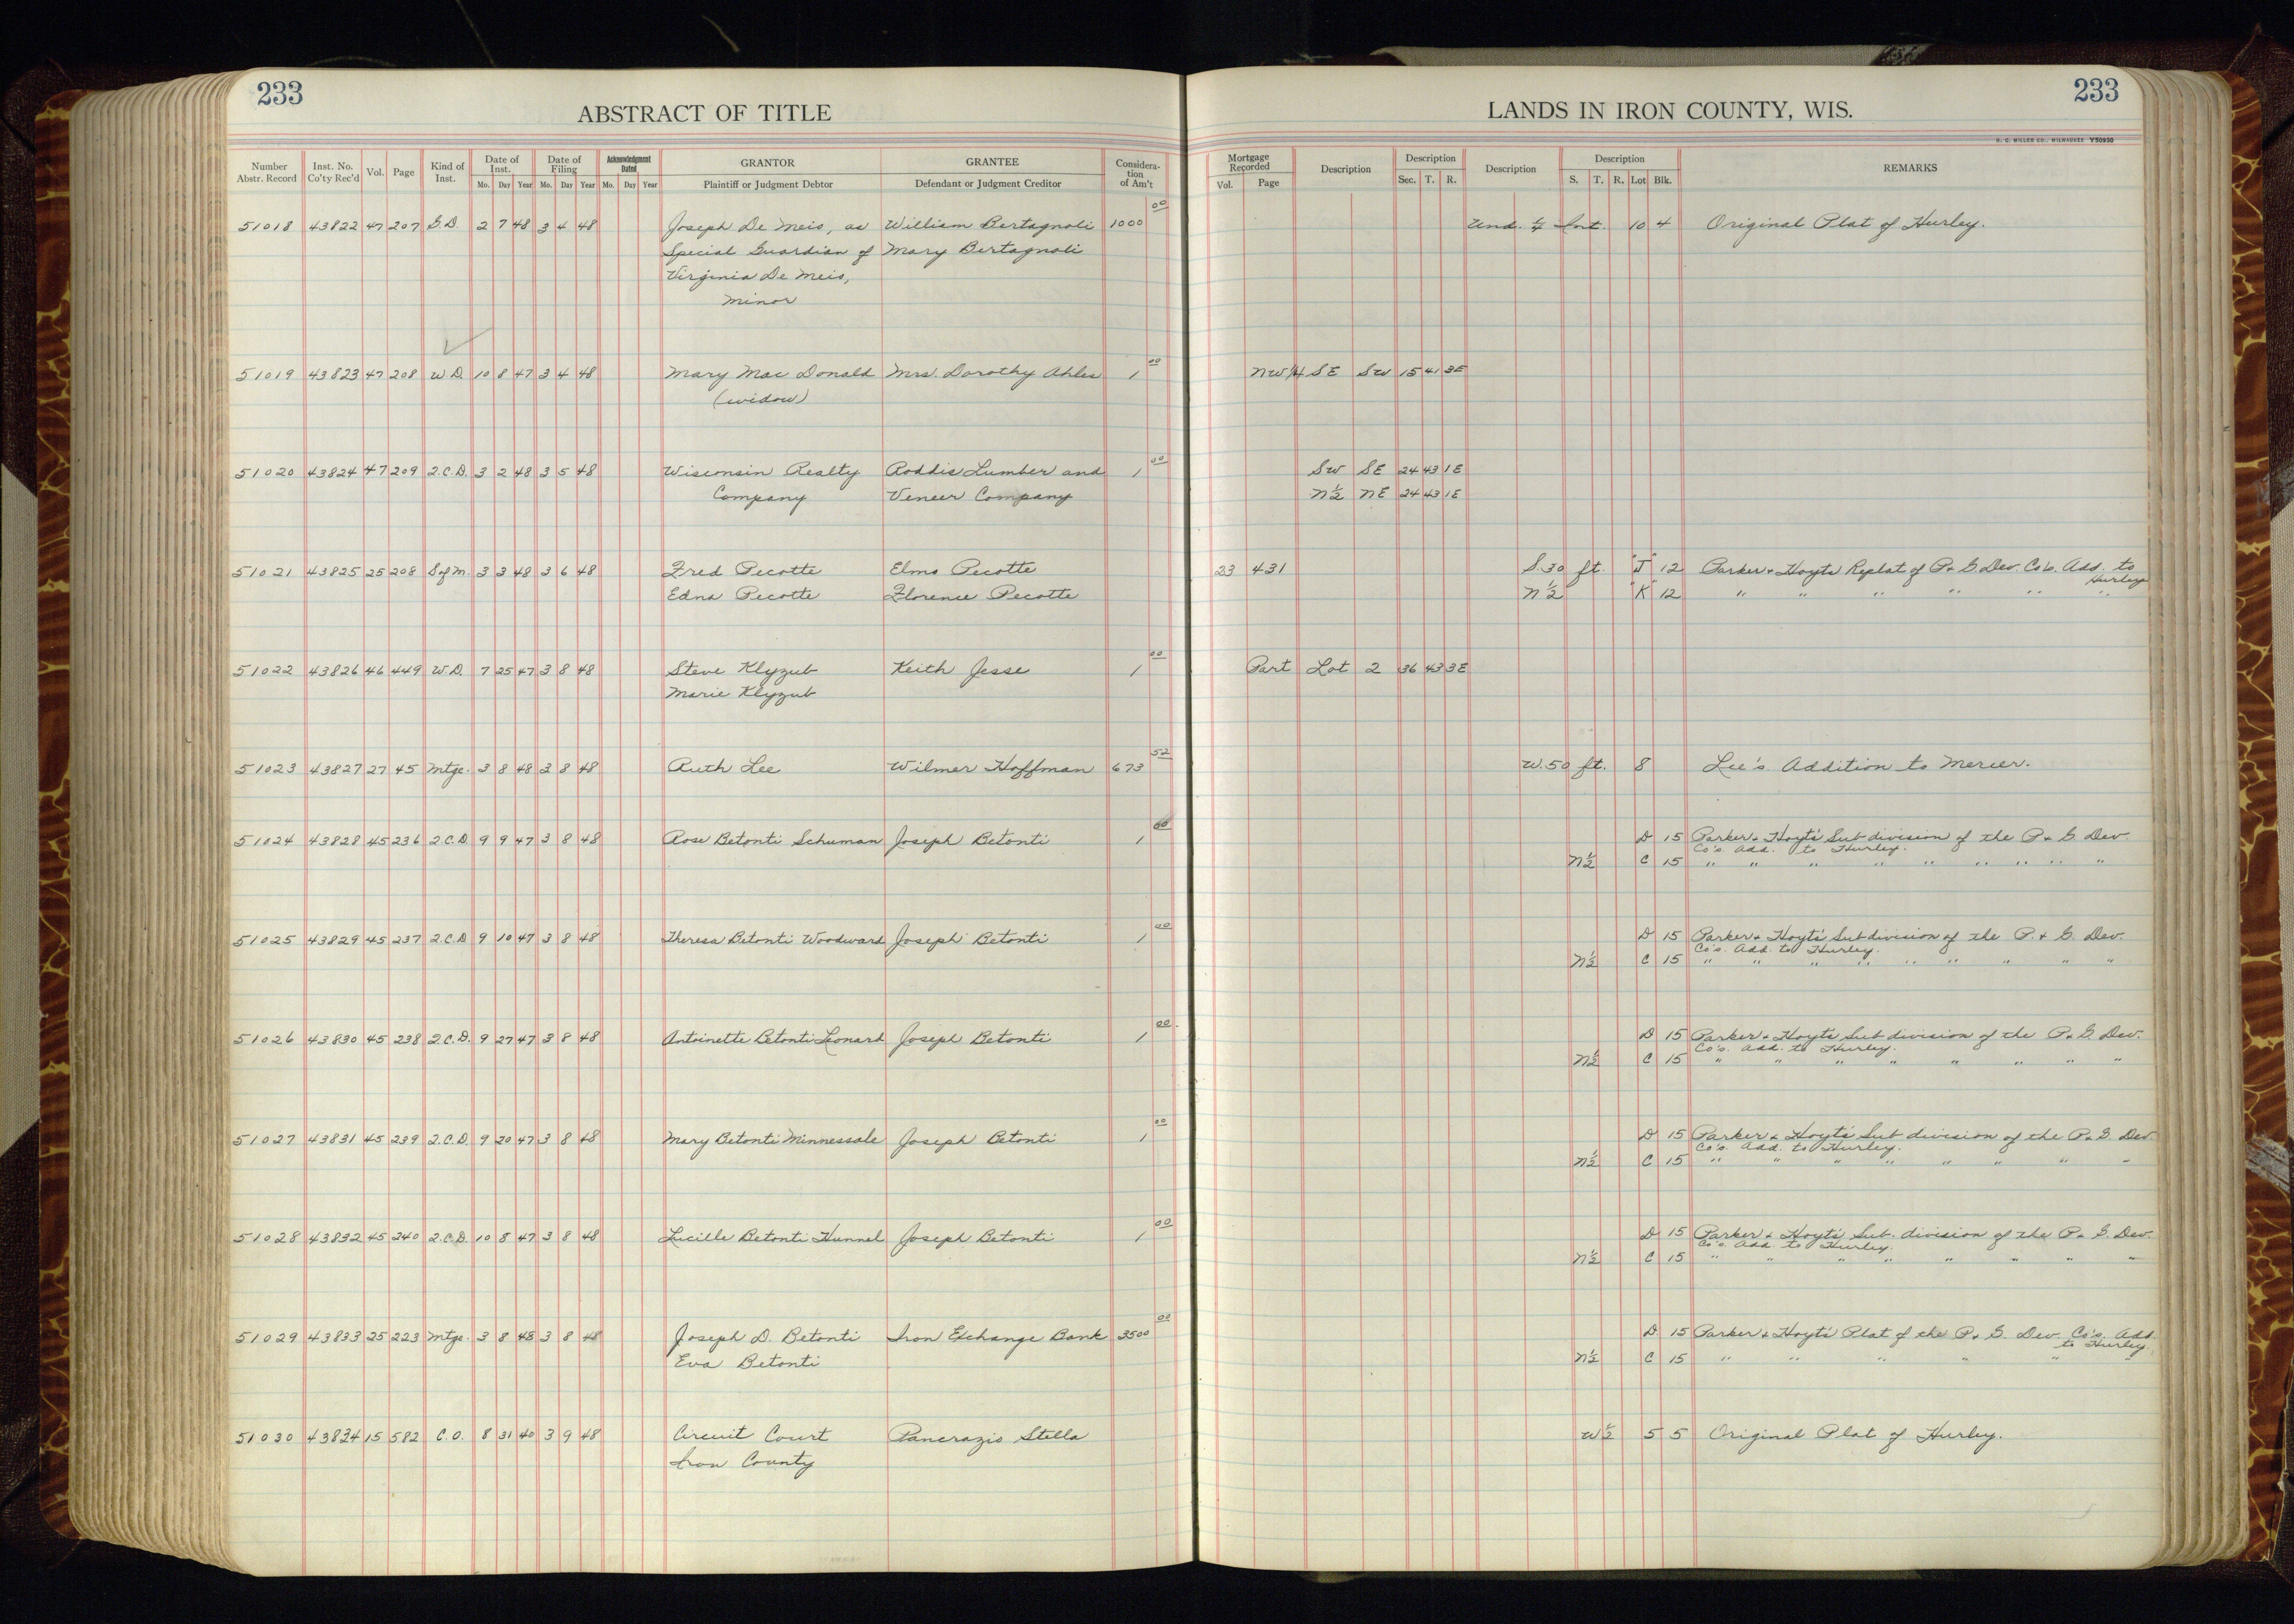 233
ABSTRACT OF TITLE
LANDS IN IRON COUNTY, WIS.
233
H. C. MILLER CO., MILWAUKEE Y50930
Number Abstr. Record Inst. No. Co'ty Rec'd Vol. Page Kind of Inst. Date of Inst. Mo. Day Year Date of Filing Mo. Day Year Acknowledgment Dated Mo. Day Year GRANTOR Plaintiff or Judgment Debtor GRANTEE Defendant or Judgment Creditor Considera-tion of Am't Mortgage Recorded Vol. Page Description Description Sec. T. R. Description Description S. T. R. Lot Blk. REMARKS
51018 43822 47 207 G.D. 2 7 48 3 4 48 Joseph De Meis, as William Bertagnoli 1000 00 Und. ¼ Int. 10 4 Original Plat of Hurley.
Special Guardian of Mary Bertagnoli
Virginia De Meis,
Minor
51019 43823 47 208 W.D. 10 8 47 3 4 48 Mary Mac Donald Mrs. Dorothy Ahles 1 00 NW¼ SE SW 15 41 3E
(widow)
51020 43824 47 209 2.C.D. 3 2 48 3 5 48 Wisconsin Realty Roddis Lumber and 1 00 SW SE 24 43 1E
Company Veneer Company N½ NE 24 43 1E
51021 43825 25 208 S of M. 3 3 48 3 6 48 Fred Pecotte Elmo Pecotte 23 431 S.30 ft. "J" 12 Parker & Hoyts Replat of P & G. Dev. Co's. Add. to Hurley
Edna Pecotte Florence Pecotte N½ "K" 12 " " " " " "
51022 43826 46 449 W.D. 7 25 47 3 8 48 Steve Klyzub Keith Jesse 1 00 Part Lot 2 36 43 3E
Marie Klyzub
51023 43827 27 45 Mtge. 3 8 48 3 8 48 Ruth Lee Wilmer Hoffman 673 52 W.50 ft. 8 Lee's Addition to Mercer.
51024 43828 45 236 2.C.D. 9 9 47 3 8 48 Rose Betonti Schuman Joseph Betonti 1 00 D 15 Parker & Hoyts' Subdivision of the P & G Dev.
Co's. Add. to Hurley.
N½ C 15 " " " " " " " " "
51025 43829 45 237 2.C.D 9 10 47 3 8 48 Theresa Betonti Woodward Joseph Betonti 1 00 D 15 Parker & Hoyts' Subdivision of the P. & G. Dev.
Co's. Add. to Hurley.
N½ C 15 " " " " " " " " "
51026 43830 45 238 2.C.D. 9 27 47 3 8 48 Antoinette Betonti Leonard Joseph Betonti 1 00 D 15 Parker & Hoyts Subdivision of the P & G. Dev.
Co's. Add. to Hurley.
N½ C 15 " " " " " " " "
51027 43831 45 239 2.C.D. 9 20 47 3 8 48 Mary Betonti Minnessale Joseph Betonti 1 00 D 15 Parker & Hoyts' Sub division of the P & G. Dev.
Co's. Add. to Hurley.
N½ C 15 " " " " " " " "
51028 43832 45 240 2.C.D. 10 8 47 3 8 48 Lucille Betonti Hunnel Joseph Betonti 1 00 D 15 Parker & Hoyts' Sub. division of the P & G. Dev.
Co's. Add. to Hurley.
N½ C 15 " " " " " " " "
51029 43833 25 223 Mtge. 3 8 48 3 8 48 Joseph D. Betonti Iron Exchange Bank 3500 00 D 15 Parker & Hoyts' Plat of the P & G. Dev. Co's. Add. to Hurley.
Eva Betonti N½ C 15 " " " " " "
51030 43834 15 582 C.O. 8 31 40 3 9 48 Circuit Court Pancrazio Stella W½ 5 5 Original Plat of Hurley.
Iron County